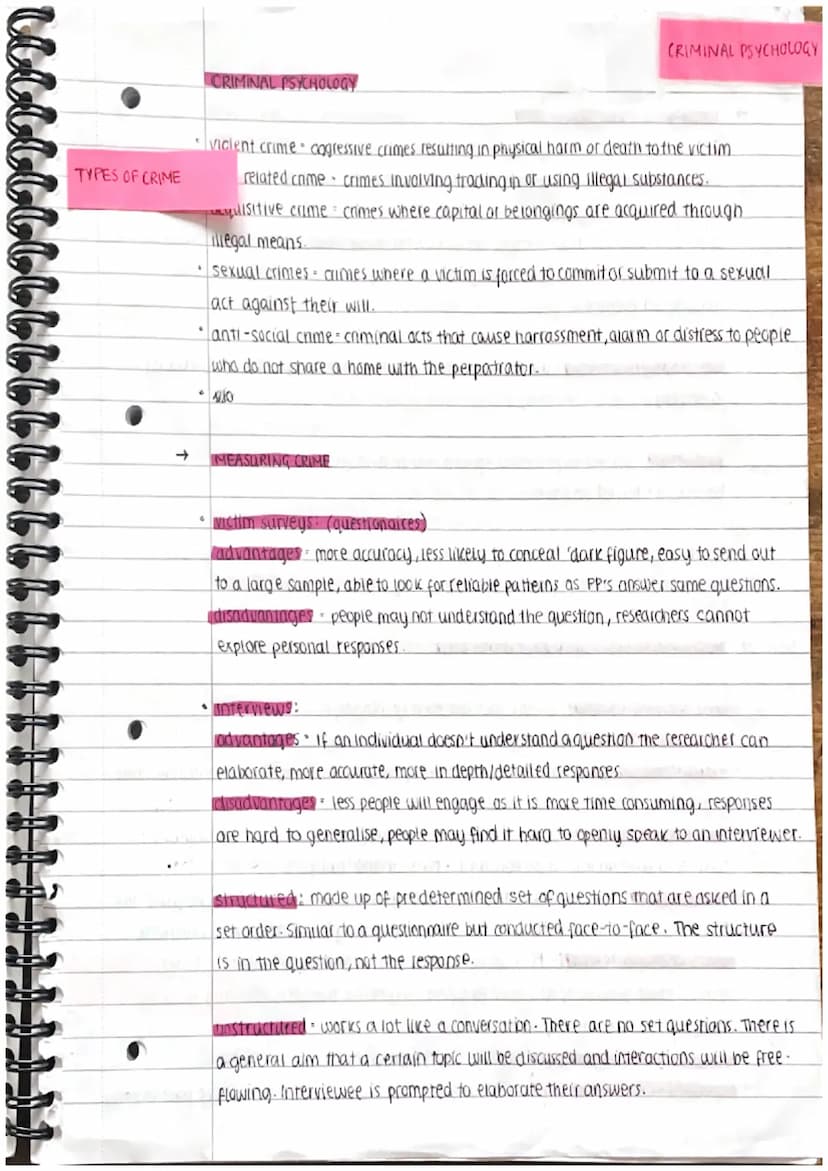 CRIMINAL PSYCHOLOGY
CRIMINAL PSYCHOLOGY
violent crime = aggressive crimes resulting in physical harm or death to the victim
TYPES OF CRIME
related crime = crimes involving trading in or using illegal substances.
acquisitive crime = crimes where capital or belongings are acquired through
illegal means.
• sexual crimes = crimes where a victim is forced to commit or submit to a sexual
act against their will.
• anti-social crime = criminal acts that cause harrassment, alarm or distress to people
who do not share a home with the perpatrator.
→ MEASURING CRIME
• victim surveys: (questionaires)
advantages = more accuracy, less likely to conceal 'dark figure, easy to send out
to a large sample, able to look for reliable patterns as PP's answer same questions.
disadvantages = people may not understand the question, researchers cannot
explore personal responses.
• interviews:
advantages = If an individual doesn't understand a question the researcher can
elaborate, more accurate, more in depth/detailed responses
disadvantages = less people will engage as it is more time consuming, responses
are hard to generalise, people may find it hard to openly speak to an interviewer.
structured: made up of predetermined set of questions that are asked in a
set order. Similar to a questionnaire but conducted face-to-face. The structure
is in the question, not the response.
unstructured = works a lot like a conversation. There are no set questions. There is
a general aim that a certain topic will be discussed and interactions will be free-
flowing. Interviewee is prompted to elaborate their answers.